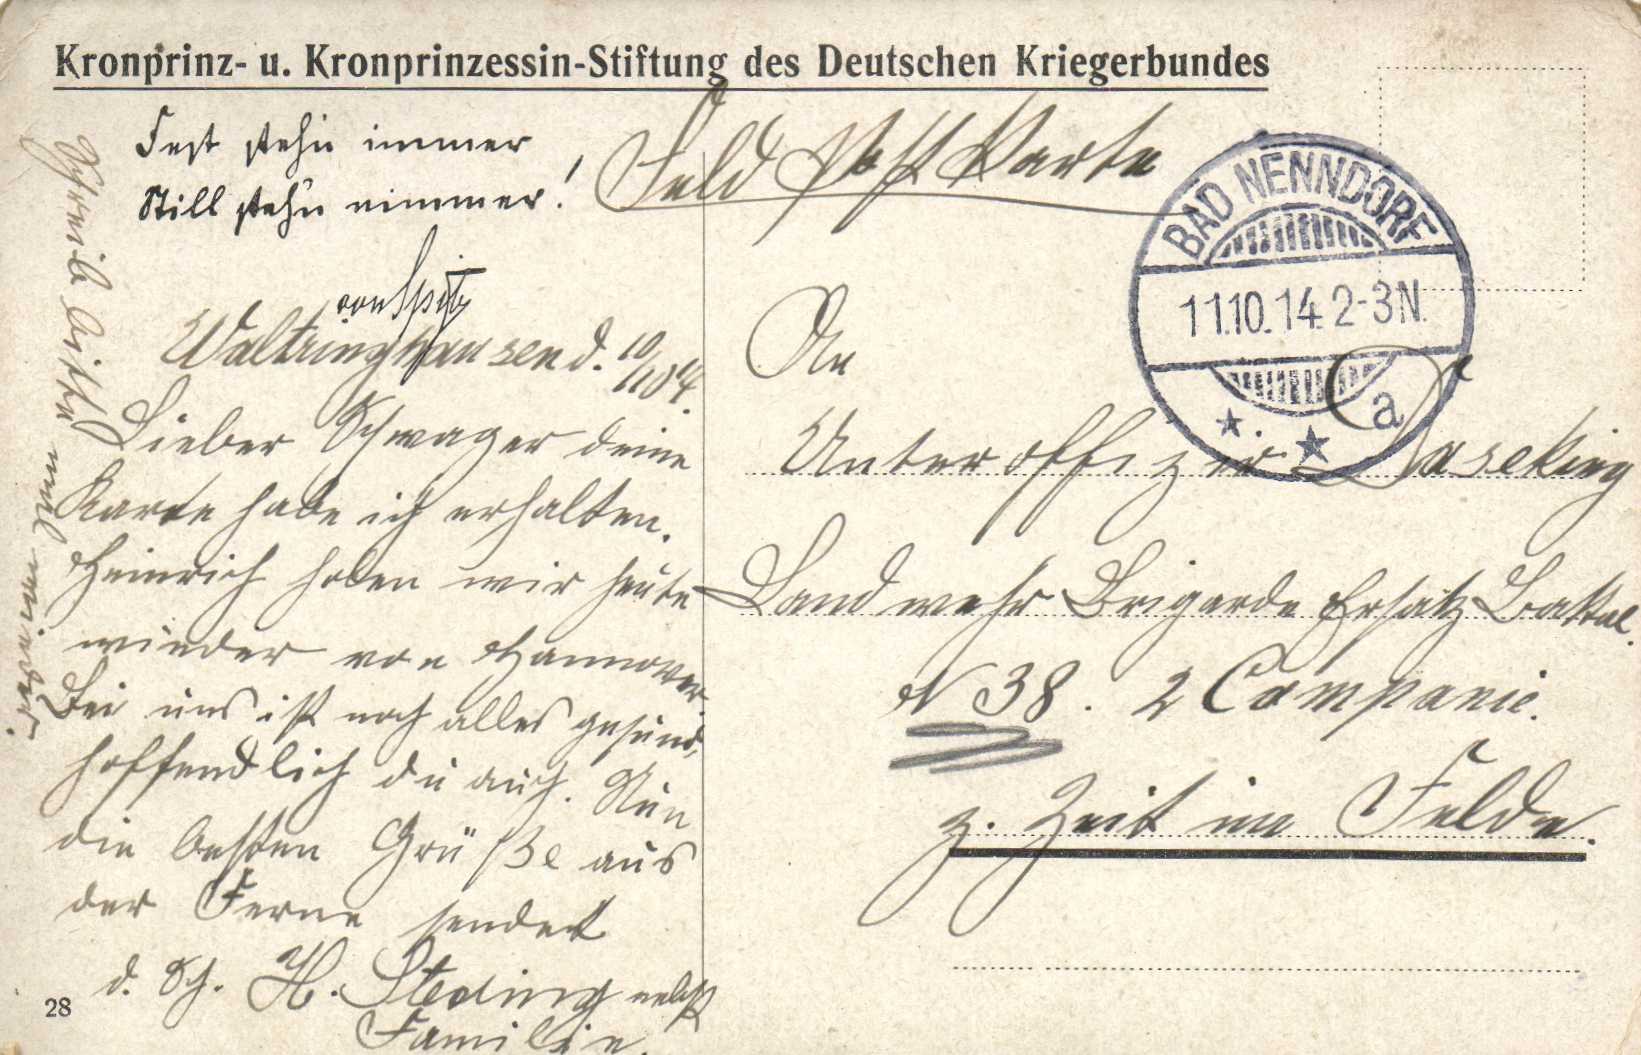 Kronprinz- u. Kronprinzessin-Stiftung des Deutschen Kriegerbundes
Fest stehn immer
Still stehn nimmer!
von Spitz
Feld Post Karte
BAD NENNDORF
11.10.14. 2-3 N.
a
Waltringhausen d. 10/10 14.
Lieber Schwager deine
Karte habe ich erhalten.
Heinrich holen wir heute
wieder von Hannover
Bei uns ist noch alles gesund,
hoffendlich du auch. Nun
die besten Grüße aus
der Ferne sendet
d. Sch. H. Steding nebst
Familie.
Schreib bitte mal wieder.
An
Unteroffizir Haseking
Landwehr Brigarde Ersatz Battal.
N 38. 2 Companie.
z. Zeit im Felde.
28